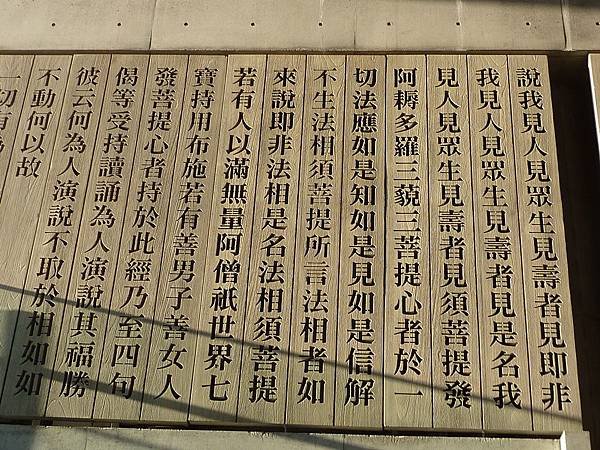 說我見人見眾生見壽者見即非
我見人見眾生見壽者見是名我
見人見眾生見壽者見須菩提發
阿耨多羅三藐三菩提心者於一
切法應如是知如是見如是信解
不生法相須菩提所言法相者如
來說即非法相是名法相須菩提
若有人以滿無量阿僧祇世界七
寶持用布施若有善男子善女人
發菩提心者持於此經乃至四句
偈等受持讀誦為人演說其福勝
彼云何為人演說不取於相如如
不動何以故
一切有為